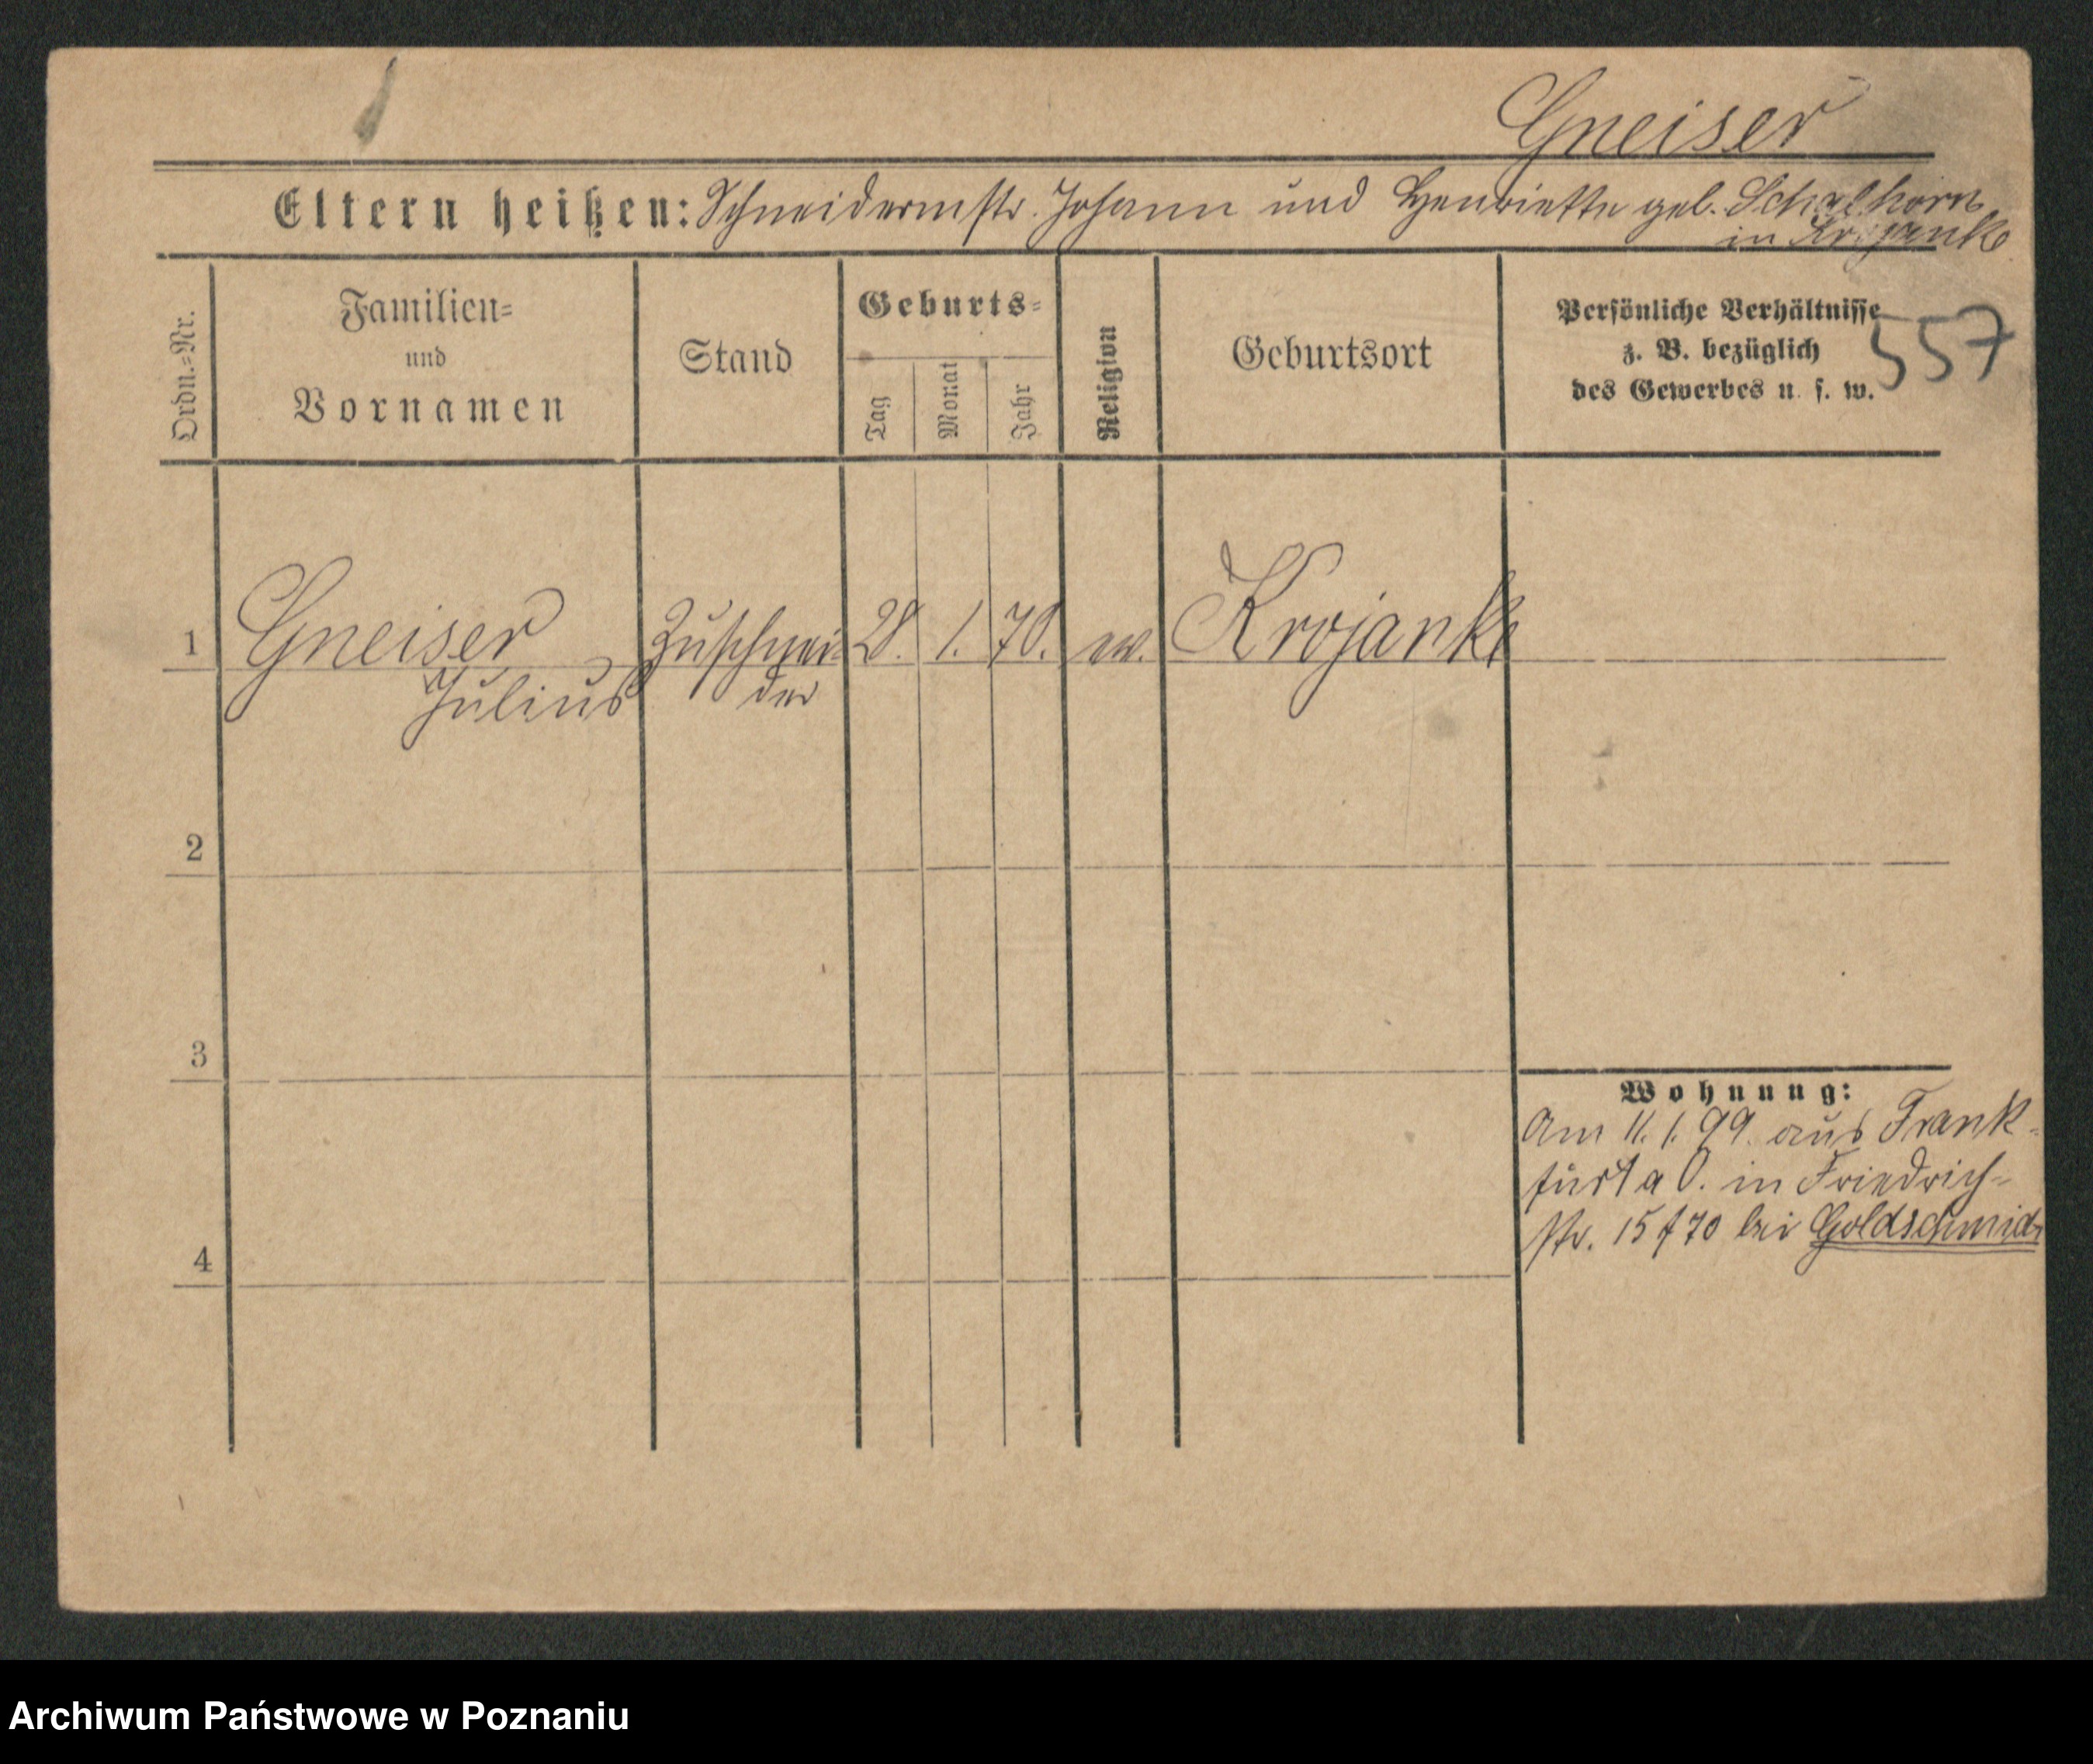 Gneiser
Eltern heißen: Schneidermstr. Johann und Henriette geb. Schalhorn
in Krojanke
Ordn.=Nr.
Familien=
und
Vornamen
Stand
Geburts=
Tag
Monat
Jahr
Religion
Geburtsort
Persönliche Verhältnisse
z. B. bezüglich
des Gewerbes u. s. w.
557
1 Gneiser Zuschnei 28. 1. 70. ev. Krojanke
Julius der
2
3
Wohnung:
Am 11. 1. 99. aus Frank-
furt a O. in Friedrich-
str. 15 f 70 bei Goldschmidt
4
Archiwum Państwowe w Poznaniu